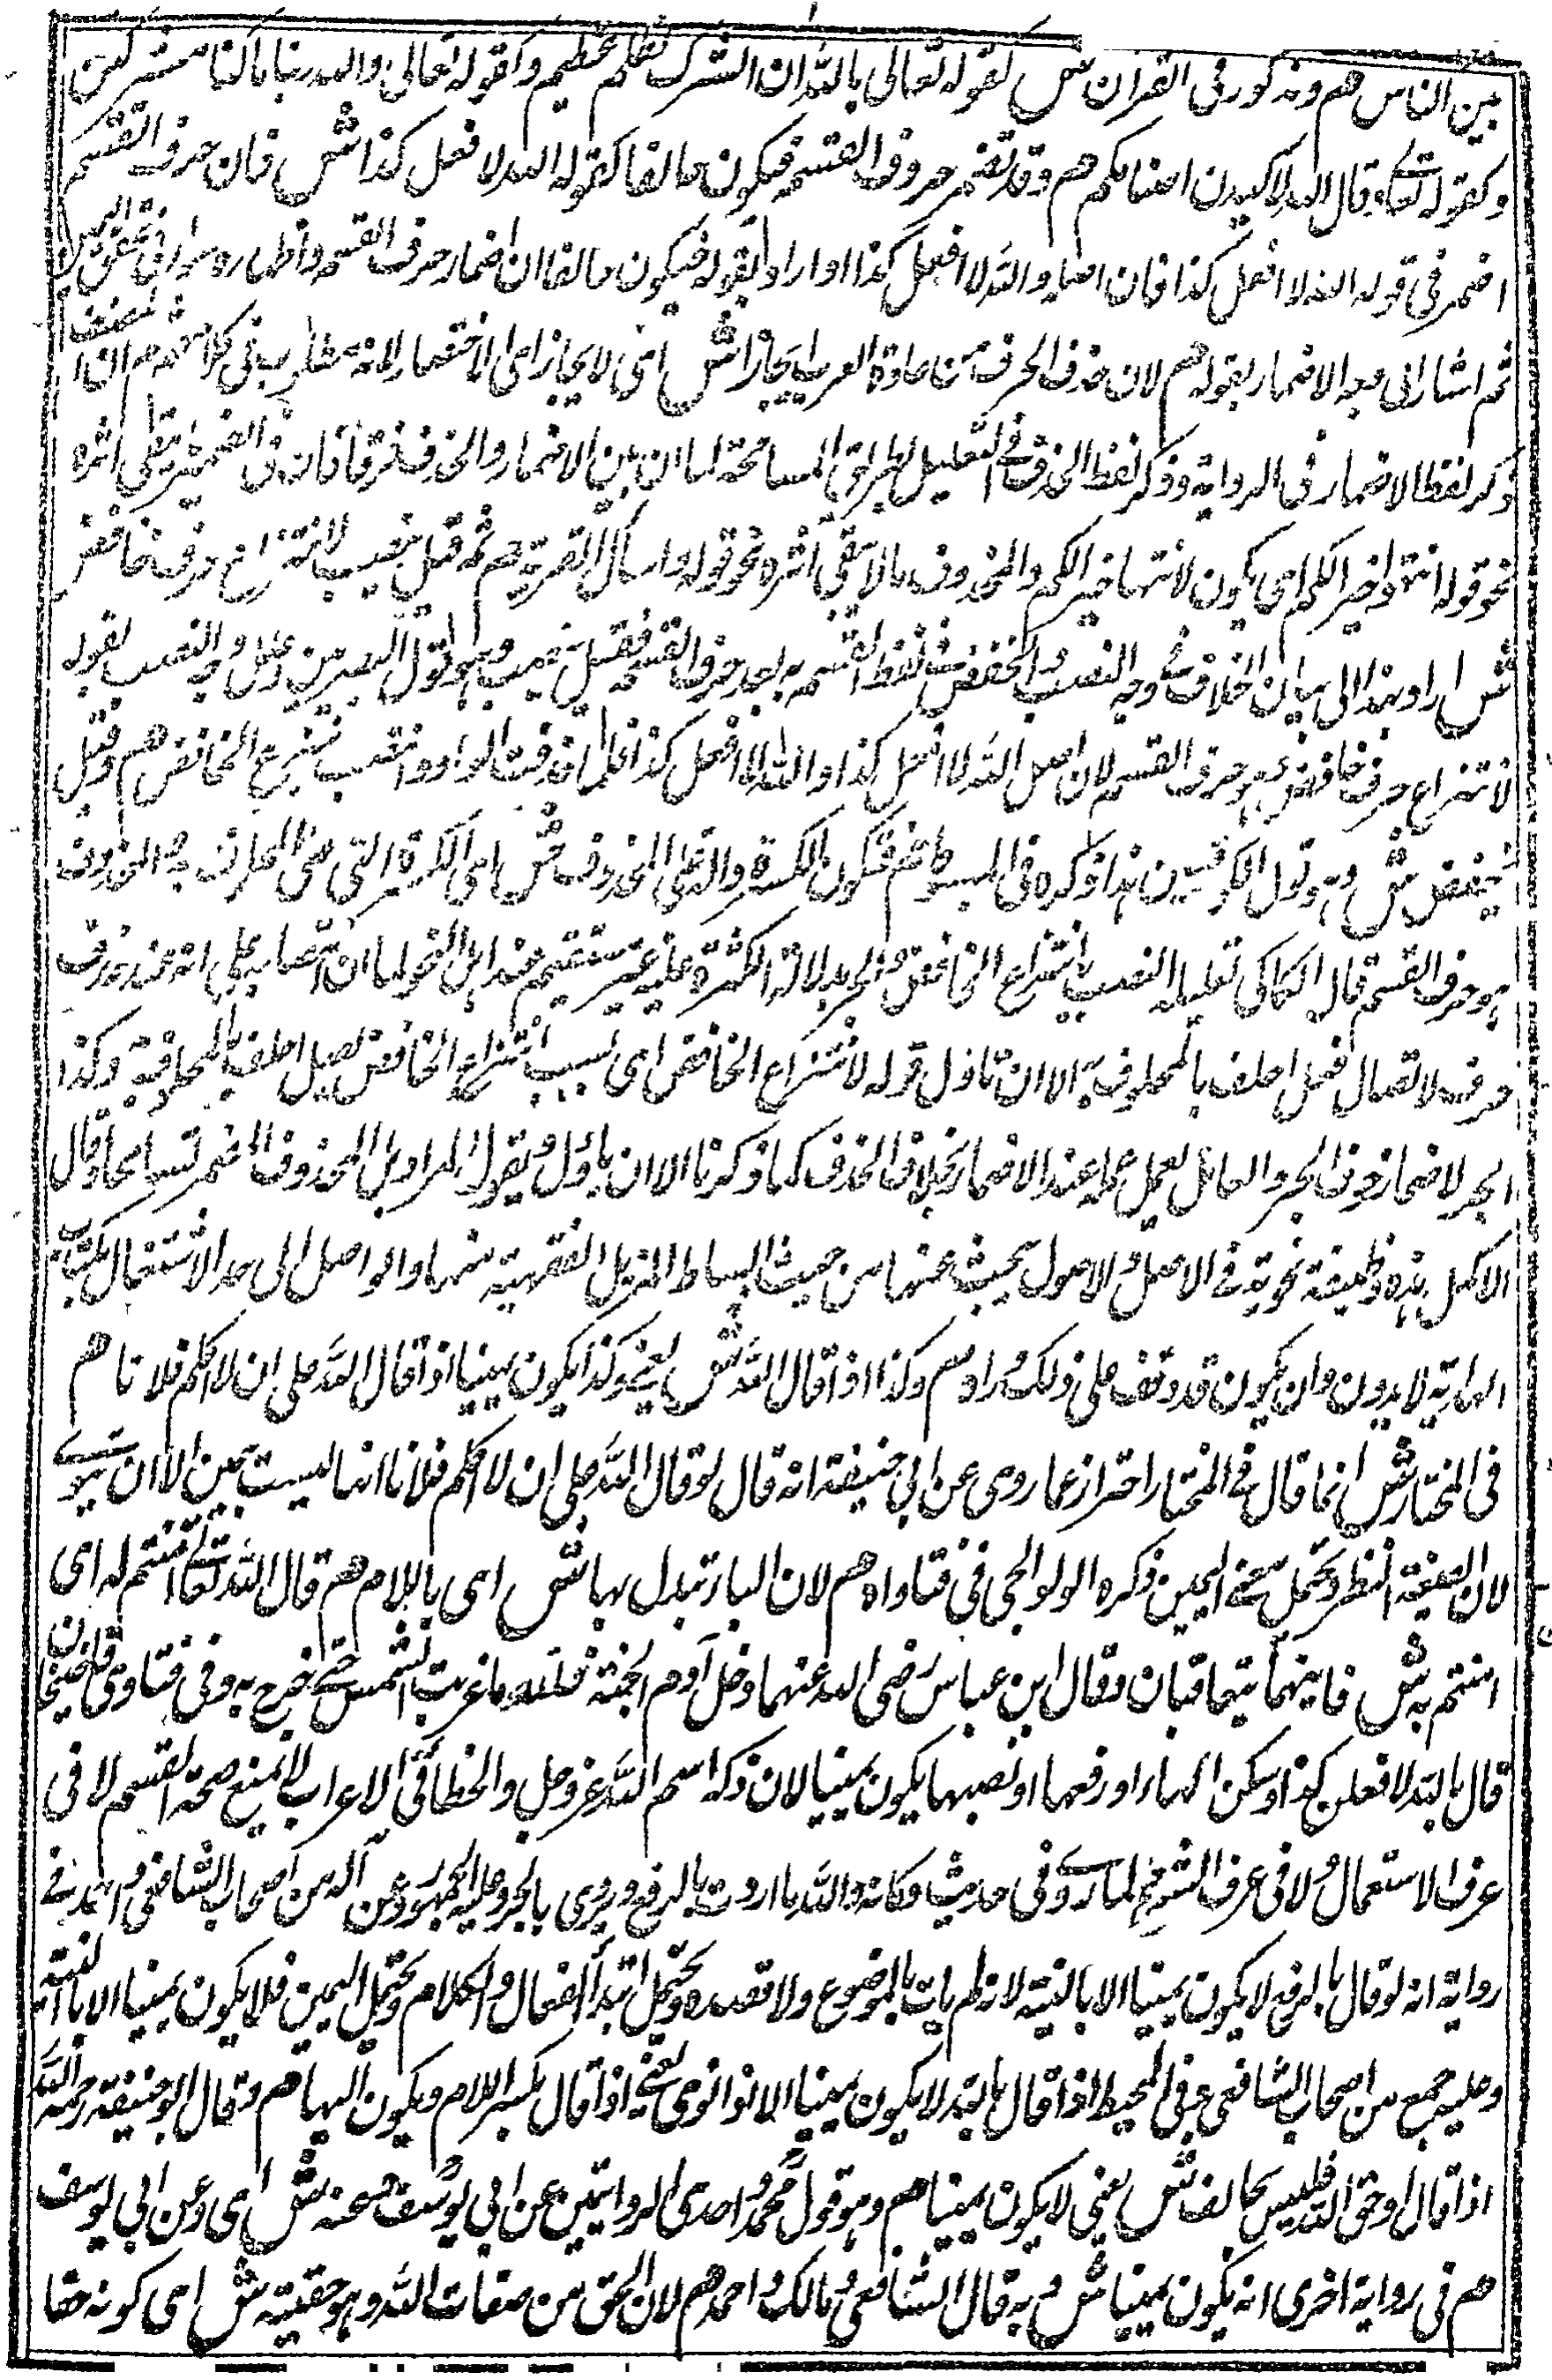 بين الناس هم ومذكور في القرآن ش كقوله تعالى بالله ان الشرك لظلم عظيم وكقوله تعالى والله ربنا ما كنا مشركين
وكقوله تعالى وقال تالله لاكيدن اصنامكم هم وقد تضمر حروف القسم فيكون حالفا كقوله الله لا افعل كذا ش فان حرف القسم
اضمر في قوله الله لا افعل كذا فان اصله والله لا افعل كذا او اراد بقوله فيكون حالفا ان اضمار حرف القسم واظهاره سواء في تحقق اليمين
ثم اشار الى وجه الاضمار بقوله هم لان حذف الحرف من عادة العرب ايجازا ش اي لايجاز اي الاختصار لانه مطلوب في كلامهم ثم ان المصنف
ذكر لفظ الاضمار في الرواية وذكر لفظ الحذف في التعليل بطريق المسامحة لما ان بين الاضمار والحذف فرقا فان في المضمر يبقى اثره
نحو قوله انتهوا خيرا لكم اي يكون لانتها خيرا لكم والمحذوف ما لا يبقى اثره نحو قوله واسأل القرية هم ثم قيل ينصب لانتزاع حرف خافض
ش اراد بهذا الى بيان الخلاف في وجه النصب والخفض في لفظ القسم به بعد حرف القسم فقيل ينصب وهو قول البصريين وعلل وجه النصب بقوله
لانتزاع حرف خافض وهو حرف القسم لان اصل الله لا افعل كذا والله لا افعل كذا فلما حذفت الواو انتصب بنزع الخافض هم وقيل
يخفض ش وهو قول الكوفيين هذا ذكره في المبسوط هم فتكون الكسرة دالة على المحذوف ش اي الكسرة التي على المحلوف به المحذوف
هو حرف القسم قال الكاكي تعليله النصب بانتزاع الخافض والجر بدلالة الكسرة عليه غير مستقيم عند اهل النحو لما ان انتصابه على انه عند حذف
حرف لاتصال فعل احلف بالمحلوف به الا ان تاول قوله لانتزاع الخافض اي بسبب انتزاع الخافض يصل احلف بالمحلوف به وكذا
الجر لاضمار حرف الجر والعامل يعمل عمله عند الاضمار بخلاف الحذف كما ذكرنا الا ان ياول ويقول المراد بل المحذوف المضمر تسامحا وقال
الاكمل هذه وظيفة نحوية في الاصل والاصول يبحث عنها من حيث انبساط المسائل الفقهية منها والواصل الى حد الاشتغال بكتاب
الهداية لا بدون وان يكون قد وقف على ذلك مرارا هم وكذا اذا قال لله ش يعني وكذا يكون يمينا اذا قال لله علي ان لا اكلم فلانا هم
في المختار ش انما قال في المختار احترازا عما روى عن ابي حنيفة انه قال لو قال لله علي ان لا اكلم فلانا انها ليست بيمين الا ان ينوى
لان الصيغة للنذر ويحتمل معنى اليمين ذكره الولوالجي في فتاواه هم لان الباء تبدل بها ش اي باللام هم قال الله تعالى امنتم له اي
امنتم به ش فانهما يتعاقبان وقال ابن عباس رضي الله عنهما دخل آدم الجنة فلله ما غربت الشمس حتى خرج به وفي فتاوى قاضيخان
قال بالله لافعلن كذا وسكن الهاء او رفعها او نصبها يكون يمينا لان ذكر اسم الله عز وجل والخطأ في الاعراب لا يمنع صحة القسم لا في
عرف الاستعمال ولا في عرف الشرع لما روى في حديث ركانة والله ما اردت بالرفع وروى بالجر وعليه الجمهور وعن آله من اصحاب الشافعي واحمد في
رواية انه لو قال بالرفع لا يكون يمينا الا بالنية لانه لم يات بالموضوع ولا قصده ويحتمل ابتدأ الفعال والكلام ويحتمل اليمين فلا يكون يمينا الا بالنية
وعليه جمع من اصحاب الشافعي وفي المحيط اذا قال بله لا يكون يمينا الا اذا نوى يعني اذا قال بكسر اللام ويكون الهاء هم وقال ابو حنيفة رحمه الله
اذا قال وحق الله فليس بحالف ش يعني لا يكون يمينا هم وهو قول محمد واحدى الروايتين عن ابي يوسف هم عنه ش اي وعن ابي يوسف
هم في رواية اخرى انه يكون يمينا ش وبه قال الشافعي ومالك واحمد هم لان الحق من صفات الله وهو حقيته ش اي كونه حقا